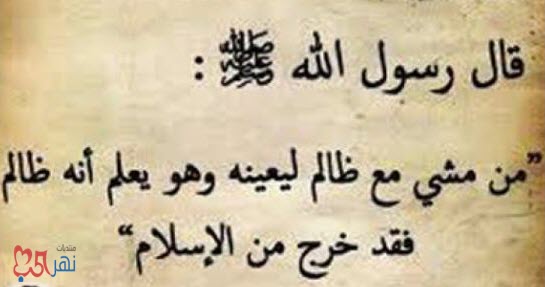 قال رسول الله ﷺ :
”من مشي مع ظالم ليعينه وهو يعلم أنه ظالم
فقد خرج من الإسلام“
منتديات
نهر الحب